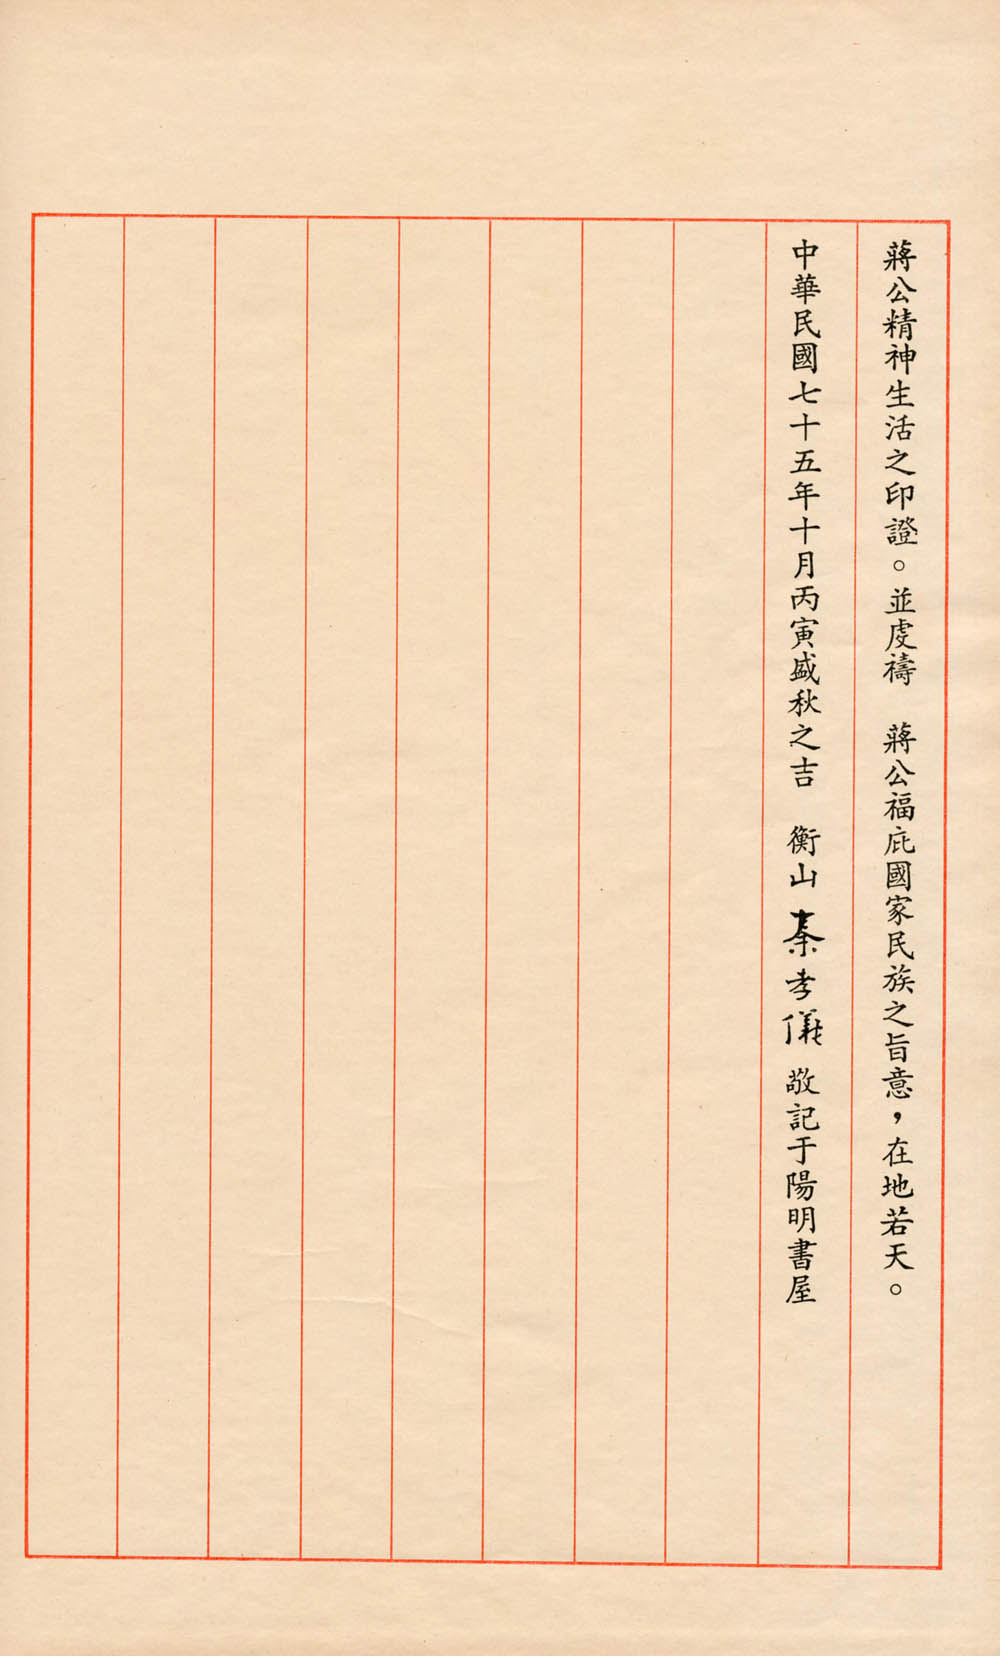 蔣公精神生活之印證。並虔禱　蔣公福庇國家民族之旨意，在地若天。
中華民國七十五年十月丙寅盛秋之吉　衡山秦孝儀敬記于陽明書屋